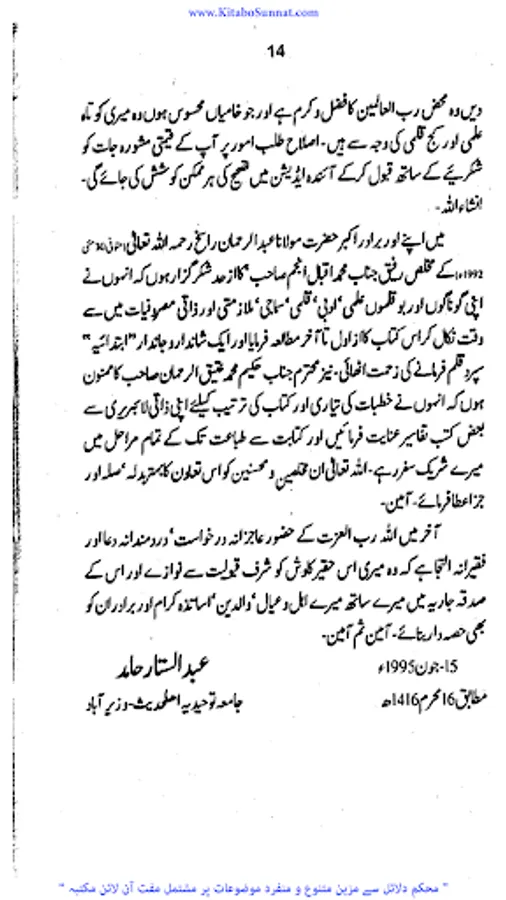 www.KitaboSunnat.com
14
دیں وہ محض رب العالمین کا فضل و کرم ہے اور جو خامیاں محسوس ہوں وہ میری کوتاہ
علمی اور کج قلمی کی وجہ سے ہیں۔ اصلاح طلب امور پر آپ کے قیمتی مشورہ جات کو
شکریئے کے ساتھ قبول کرکے آئندہ ایڈیشن میں تصحیح کی ہر ممکن کوشش کی جائے گی۔
انشاء اللہ۔
میں اپنے اور برادر اکبر حضرت مولانا عبدالرحمان راسخ رحمہ اللہ تعالیٰ (متوفی 30 مئی
1992ء) کے مخلص رفیق جناب محمد اقبال انجم صاحب کا ازحد شکر گزار ہوں کہ انہوں نے
اپنی گوناگوں اور بوقلموں علمی‘ ادبی‘ قلمی‘ سماجی‘ ملازمتی اور ذاتی مصروفیات میں سے
وقت نکال کر اس کتاب کا از اول تا آخر مطالعہ فرمایا اور ایک شاندار و جاندار ”ابتدائیہ“
سپرد قلم فرمانے کی زحمت اٹھائی۔ نیز محترم جناب حکیم محمد عتیق الرحمان صاحب کا ممنون
ہوں کہ انہوں نے خطبات کی تیاری اور کتاب کی ترتیب کیلئے اپنی ذاتی لائبریری سے
بعض کتب تفاسیر عنایت فرمائیں اور کتابت سے طباعت تک کے تمام مراحل میں
میرے شریک سفر رہے۔ اللہ تعالیٰ ان مخلصین و محسنین کو اس تعاون کا بہتر بدلہ‘ صلہ اور
جزا عطا فرمائے۔ آمین۔
آخر میں اللہ رب العزت کے حضور عاجزانہ درخواست‘ دردمندانہ دعا اور
فقیرانہ التجا ہے کہ وہ میری اس حقیر کاوش کو شرف قبولیت سے نوازے اور اس کے
صدقہ جاریہ میں میرے ساتھ میرے اہل و عیال‘ والدین‘ اساتذہ کرام اور برادران کو
بھی حصہ دار بنائے۔ آمین ثم آمین۔
15۔ جون 1995ء عبدالستار حامد
مطابق 16 محرم 1416ھ جامعہ توحیدیہ اھلحدیث۔ وزیر آباد
" محکم دلائل سے مزین متنوع و منفرد موضوعات پر مشتمل مفت آن لائن مکتبہ "